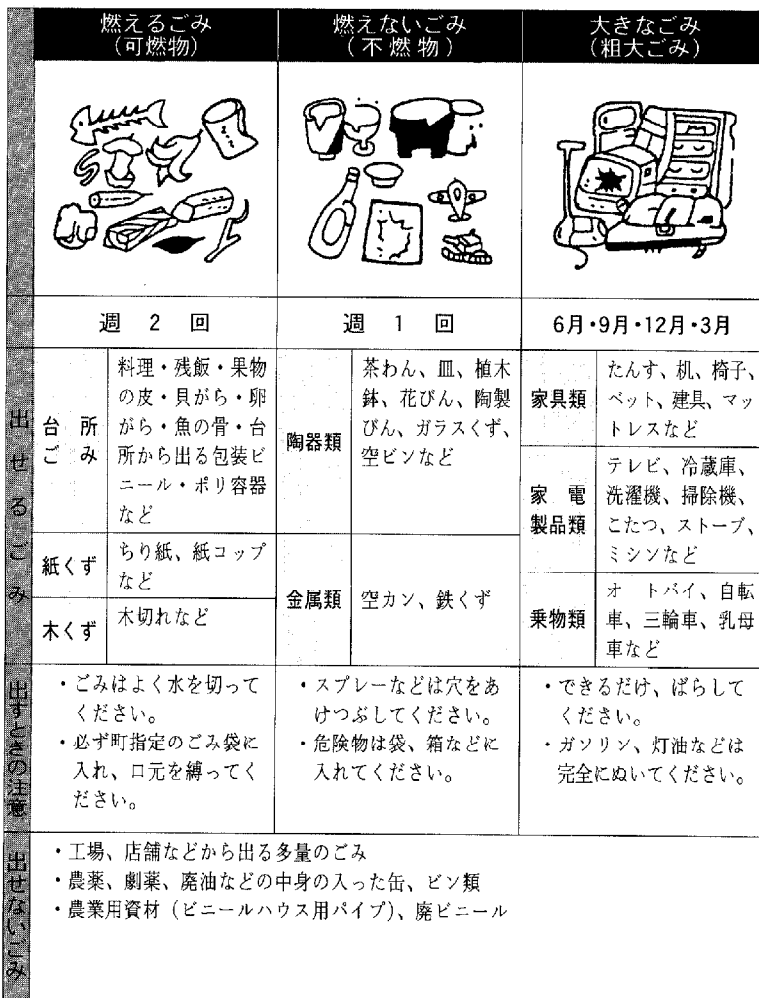 燃えるごみ
(可燃物)
燃えないごみ
(不燃物)
大きなごみ
(粗大ごみ)
週2回
週1回
6月・9月・12月・3月
出せるごみ
台所
ごみ
料理・残飯・果物
の皮・貝がら・卵
がら・魚の骨・台
所から出る包装ビ
ニール・ポリ容器
など
紙くず
ちり紙、紙コップ
など
木くず
木切れなど
陶器類
茶わん、皿、植木
鉢、花びん、陶製
びん、ガラスくず、
空ビンなど
金属類
空カン、鉄くず
家具類
たんす、机、椅子、
ベット、建具、マッ
トレスなど
家電
製品類
テレビ、冷蔵庫、
洗濯機、掃除機、
こたつ、ストーブ、
ミシンなど
乗物類
オートバイ、自転
車、三輪車、乳母
車など
出すときの注意
・ごみはよく水を切って
ください。
・必ず町指定のごみ袋に
入れ、口元を縛ってく
ださい。
・スプレーなどは穴をあ
けつぶしてください。
・危険物は袋、箱などに
入れてください。
・できるだけ、ばらして
ください。
・ガソリン、灯油などは
完全にぬいてください。
出せないごみ
・工場、店舗などから出る多量のごみ
・農薬、劇薬、廃油などの中身の入った缶、ビン類
・農業用資材(ビニールハウス用パイプ)、廃ビニール